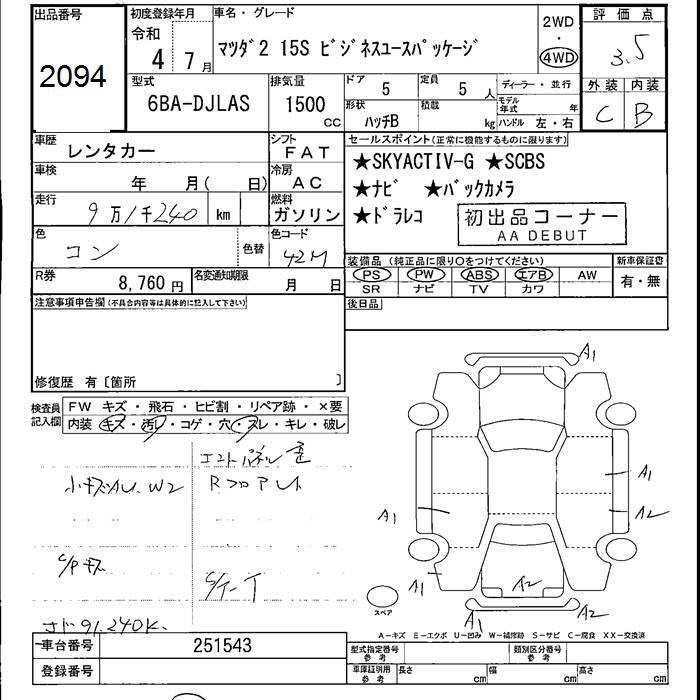 出品番号
2094
初度登録年月
令和
4年 7月
車名・グレード
マツダ2 15S ビジネスユースパッケージ
2WD
・
4WD
評価点
3.5
外装 内装
C B
型式
6BA-DJLAS
排気量
1500 CC
ドア 5
定員 5人
形状
ハッチB
積載
kg
ディーラー・並行
モデル年式 年
ハンドル 左・右
車歴
レンタカー
シフト
FAT
車検
年 月( 日)
冷房
AC
走行
9万1千240 km
燃料
ガソリン
色
コン
色替
色コード
42M
R券
8,760円
名変通知期限
月 日
セールスポイント(正常に機能するものに限ります)
★SKYACTIV-G ★SCBS
★ナビ ★バックカメラ
★ドラレコ
初出品コーナー
AA DEBUT
装備品 (純正品に限り○をつけてください)
新車保証書
PS PW ABS エアB AW
SR ナビ TV カワ
有・無
後日品
注意事項申告欄(不具合内容等は具体的に記入して下さい)
修復歴 有〔箇所 〕
検査員記入欄
FW キズ・飛石・ヒビ割・リペア跡・×要
内装 キズ・汚レ・コゲ・穴・スレ・キレ・破レ
小キズAU.W2
R フロアトレ
C/Pキズ
91.240K.
A1
A1
A2
A1
A1
A2
A1
A2
スペア
A-キズ E-エクボ U-凹み W-補修跡 S-サビ C-腐食 XX-交換済
車台番号
251543
登録番号
型式指定番号
参考
類別区分番号
参考
車庫証明用
参考
長さ cm
幅 cm
高さ cm